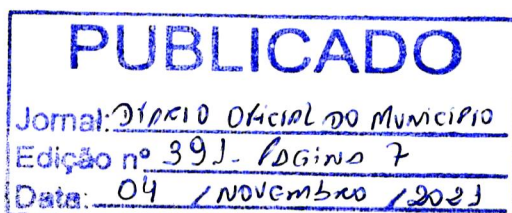 PUBLICADO
Jornal: DIÁRIO OFICIAL DO MUNICIPIO
Edição nº 391 - PÁGINA 7
Data: 04 / NOVEMBRO / 2021